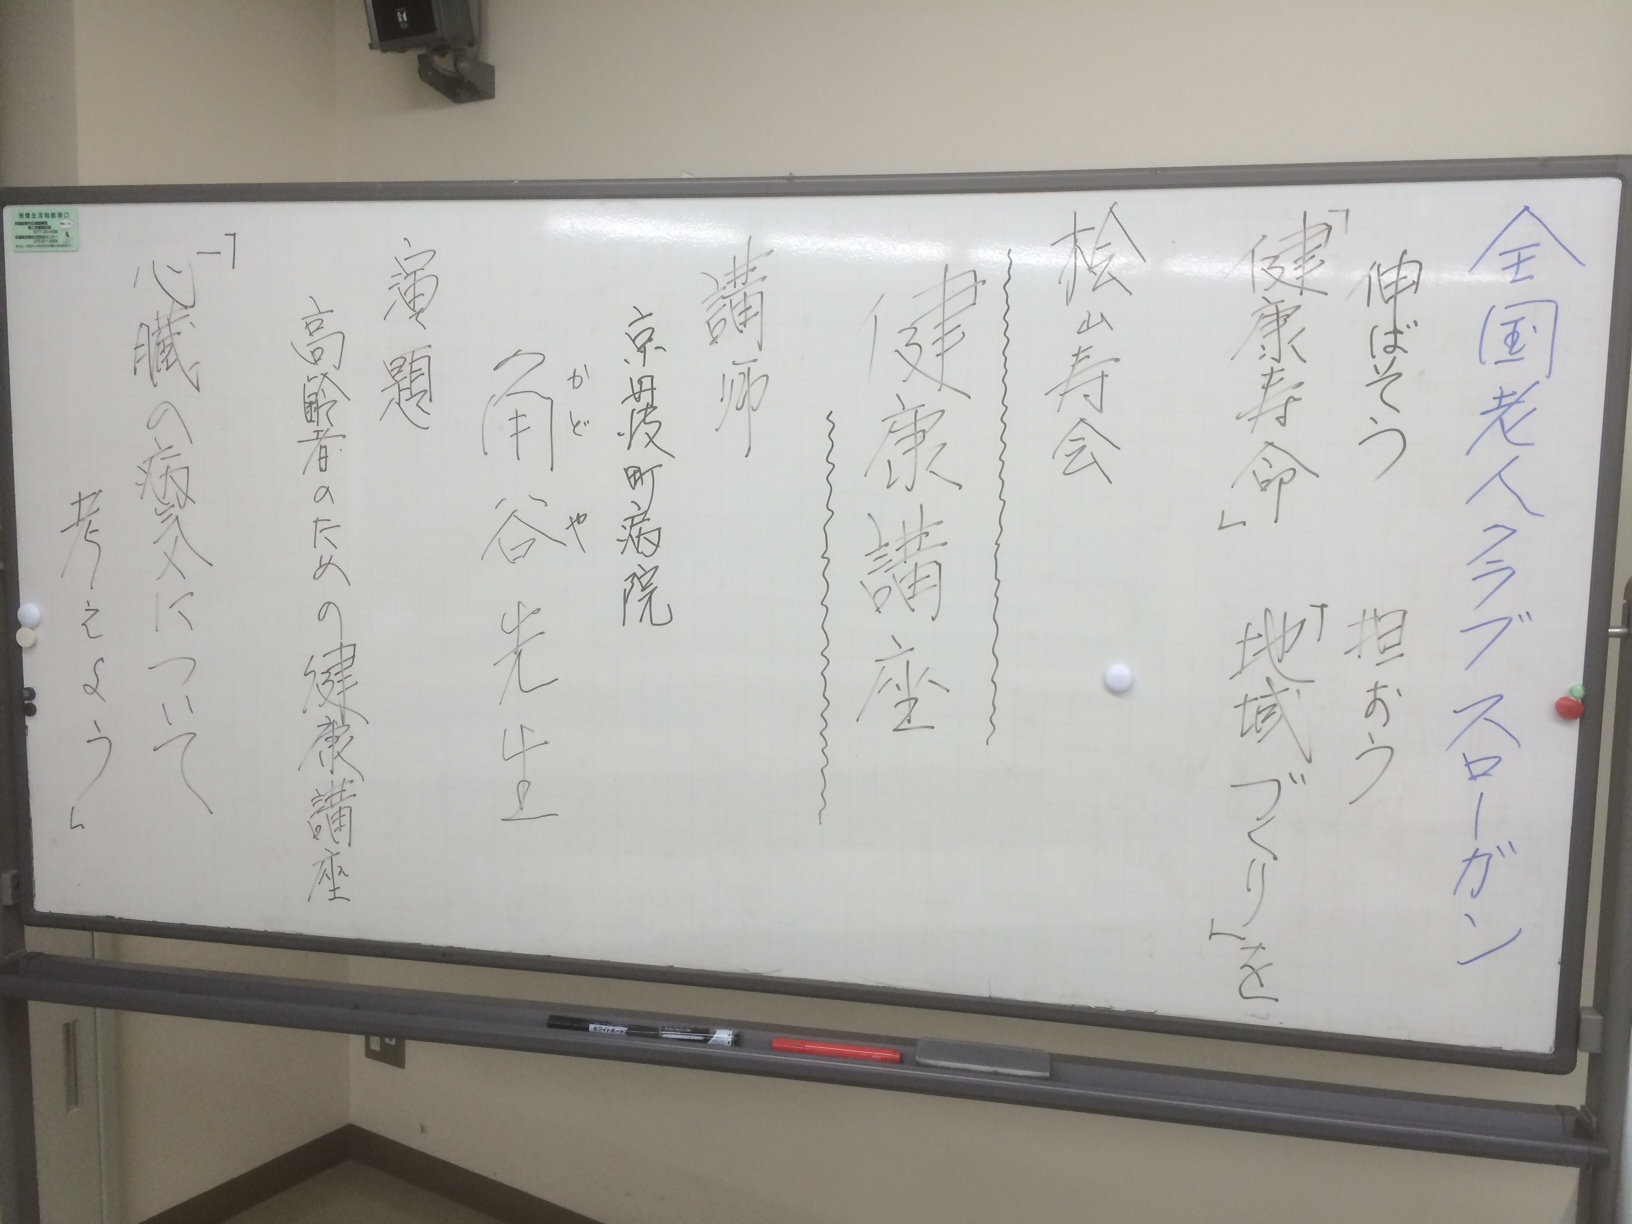 全国老人クラブ スローガン
伸ばそう 担おう
「健康寿命」 「地域づくり」を
桧山寿会
健康講座
講師
京丹波町病院
かどや
角谷先生
演題
高齢者のための健康講座
「心臓の病気について
考えよう」
ホワイトボード